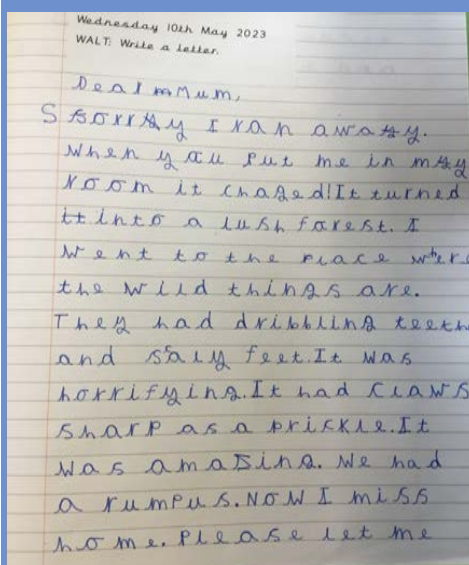 Wednesday 10th May 2023
WALT: Write a letter.
Dear Mum,
Sorry I ran away.
When you put me in my
room it chaged! It turned
into a lush forest. I
went to the place where
the wild things are.
They had dribbling teeth
and scaly feet. It was
horrifying. It had claws
sharp as a prickle. It
was amazing. We had
a rumpus. Now I miss
home. Please let me